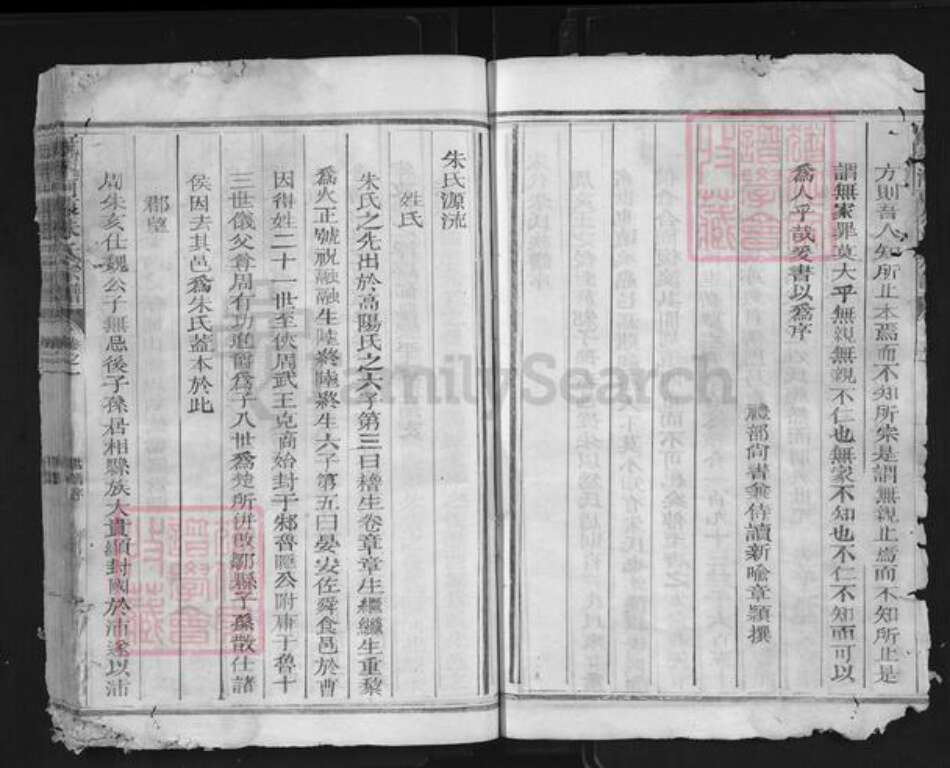 方則吾人知所止本焉而不知所宗是謂無親止焉而不知所止是
謂無家罪莫大乎無親無親不仁也無家不知也不仁不知而可以
爲人乎哉爰書以爲序
禮部尚書兼侍讀新喻章穎撰
朱氏源流
姓氏
朱氏之先出於高陽氏之六子第三曰穭生卷章章生繼繼生重黎
爲火正號祝融融生陸終陸終生六子第五曰晏安佐舜食邑於曹
因得姓二十一世至俠周武王克商始封于邾魯隱公附庸于魯十
三世儀父尊周有功進爵爲子八世爲楚所併改鄒縣子孫散仕諸
侯因去其邑爲朱氏蓋本於此
郡望
周朱亥仕魏公子無忌後子孫居相縣族大貴顯封國於沛遂以沛
FamilySearch